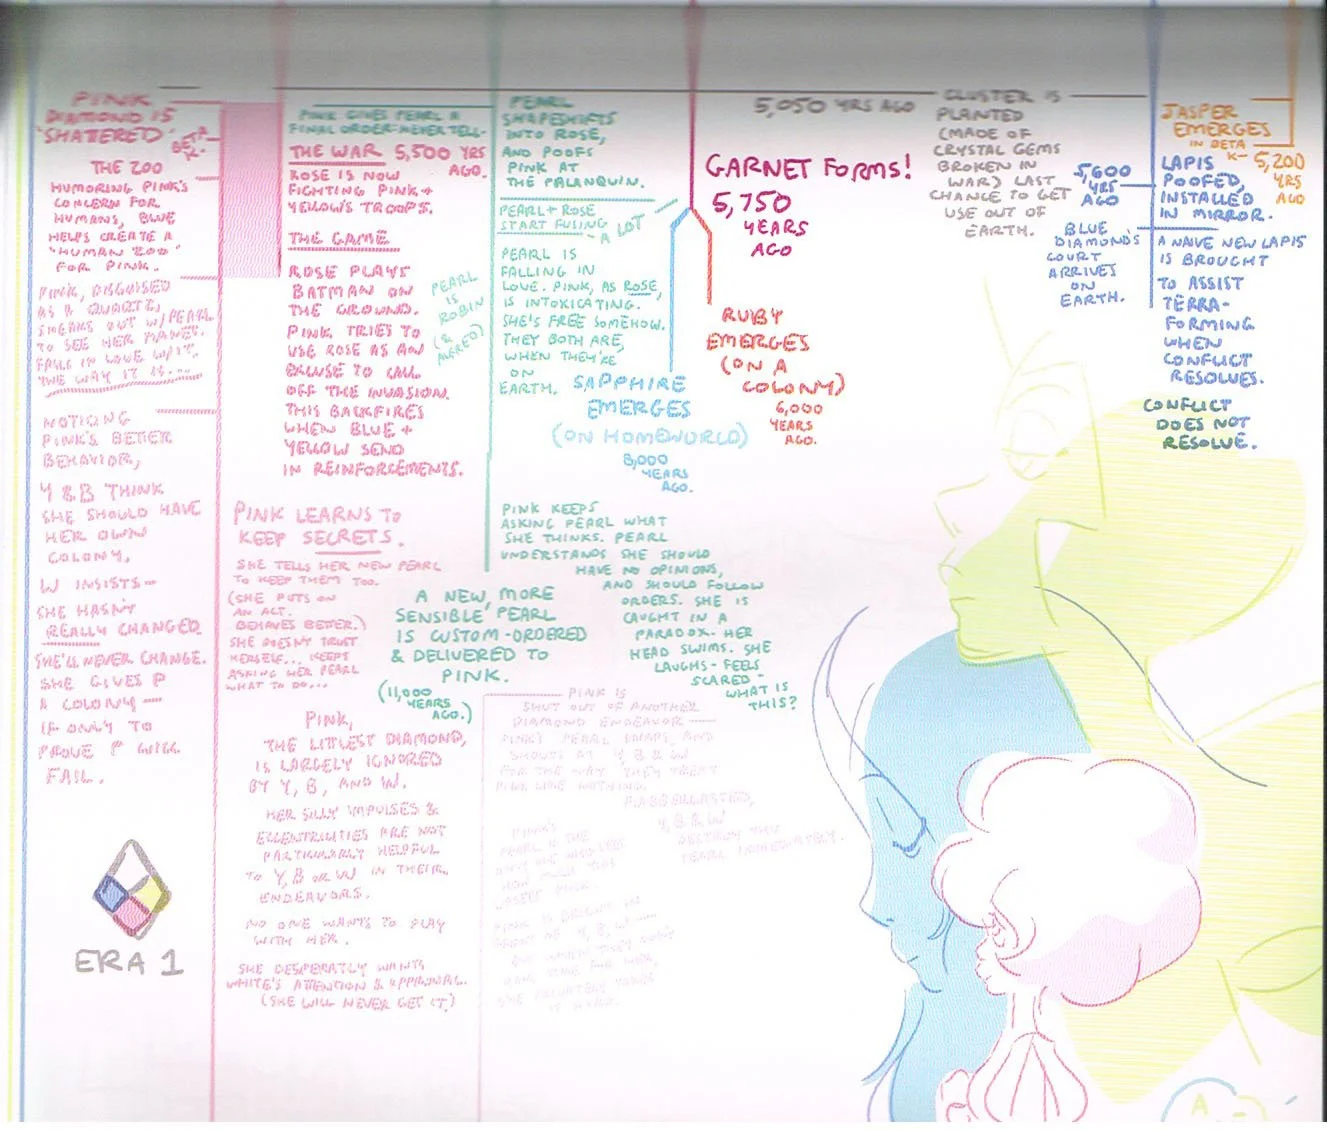 PINK
DIAMOND IS
"SHATTERED"
BETA
K.
THE ZOO
HUMORING PINK'S
CONCERN FOR
HUMANS, BLUE
HELPS CREATE A
"HUMAN ZOO"
FOR PINK.
PINK, DISGUISED
AS A QUARTZ,
SNEAKS OUT W/PEARL
TO SEE HER PLANET.
FALLS IN LOVE W/IT.
THE WAY IT IS....
NOTICING
PINK'S BETTER
BEHAVIOR,
Y & B THINK
SHE SHOULD HAVE
HER OWN
COLONY.
W INSISTS—
SHE HASN'T
REALLY CHANGED.
SHE'LL NEVER CHANGE.
SHE GIVES P
A COLONY—
IF ONLY TO
PROVE P WILL
FAIL.
ERA 1
PINK GIVES PEARL A
FINAL ORDER: NEVER TELL.
THE WAR 5,500 YRS
AGO.
ROSE IS NOW
FIGHTING PINK +
YELLOW'S TROOPS.
THE GAME
ROSE PLAYS
BATMAN ON
THE GROUND.
PINK TRIES TO
USE ROSE AS AN
EXCUSE TO CALL
OFF THE INVASION.
THIS BACKFIRES
WHEN BLUE +
YELLOW SEND
IN REINFORCEMENTS.
PEARL
IS
ROBIN
(& ALFRED)
PINK LEARNS TO
KEEP SECRETS.
SHE TELLS HER NEW PEARL
TO KEEP THEM TOO.
(SHE PUTS ON
AN ACT.
BEHAVES BETTER.)
SHE DOESN'T TRUST
HERSELF... KEEPS
ASKING HER PEARL
WHAT TO DO...
PINK,
THE LITTLEST DIAMOND,
IS LARGELY IGNORED
BY Y, B, AND W.
HER SILLY IMPULSES &
ECCENTRICITIES ARE NOT
PARTICULARLY HELPFUL
TO Y, B OR W IN THEIR
ENDEAVORS.
NO ONE WANTS TO PLAY
WITH HER.
SHE DESPERATLY WANTS
WHITE'S ATTENTION & APPROVAL.
(SHE WILL NEVER GET IT.)
PEARL
SHAPESHIFTS
INTO ROSE,
AND POOFS
PINK AT
THE PALANQUIN.
PEARL + ROSE
START FUSING
- A LOT
PEARL IS
FALLING IN
LOVE. PINK, AS ROSE,
IS INTOXICATING.
SHE'S FREE SOMEHOW.
THEY BOTH ARE,
WHEN THEY'RE
ON
EARTH.
PINK KEEPS
ASKING PEARL WHAT
SHE THINKS. PEARL
UNDERSTANDS SHE SHOULD
HAVE NO OPINIONS,
AND SHOULD FOLLOW
ORDERS. SHE IS
CAUGHT IN A
PARADOX. HER
HEAD SWIMS. SHE
LAUGHS - FEELS
SCARED -
WHAT IS
THIS?
A NEW, MORE
SENSIBLE PEARL
IS CUSTOM-ORDERED
& DELIVERED TO
PINK.
(11,000
YEARS
AGO.)
PINK IS
SHUT OUT OF ANOTHER
DIAMOND ENDEAVOR—
PINK'S PEARL AND
SHOUTS AT Y, B & W
FOR THE WAY THEY TREAT
PINK LIKE NOTHING.
FLABBERGASTED,
Y, B & W
DESTROY THIS
PEARL IMMEDIATELY.
PINK'S
PEARL IS THE
SHE PRIVATELY
GARNET FORMS!
5,750
YEARS
AGO
SAPPHIRE
EMERGES
(ON HOMEWORLD)
8,000
YEARS
AGO.
RUBY
EMERGES
(ON A
COLONY)
6,000
YEARS
AGO.
5,050 YRS AGO
CLUSTER IS
PLANTED
(MADE OF
CRYSTAL GEMS
BROKEN IN
WAR) LAST
CHANCE TO GET
USE OUT OF
EARTH.
5,600
YRS
AGO
BLUE
DIAMOND'S
COURT
ARRIVES
ON
EARTH.
JASPER
EMERGES
IN BETA
K—
5,200
YRS
AGO
LAPIS
POOFED,
INSTALLED
IN MIRROR.
A NAIVE NEW LAPIS
IS BROUGHT
TO ASSIST
TERRA-
FORMING
WHEN
CONFLICT
RESOLVES.
CONFLICT
DOES NOT
RESOLVE.